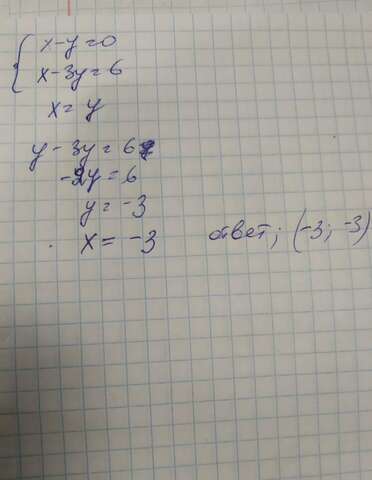 x-y=0
x-3y=6
x=y
y-3y=6
-2y=6
y=-3
x=-3 ответ; (-3; -3)